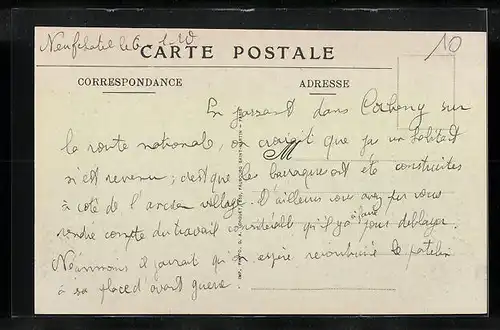 Neufchatel le 6-1-20
10
CARTE POSTALE
CORRESPONDANCE
ADRESSE
En passant dans Corbeny sur
la route nationale, on croirait que pas un habitant
M
n'est revenu; c'est que les baraques ont été construites
à côté de l'ancien village. D'ailleurs vous avez pu vous
rendre compte du travail considérable qu'il y a à faire pour déblayer.
Néanmoins il paraît qu'on espère reconstruire le patelin
à sa place d'avant guerre.